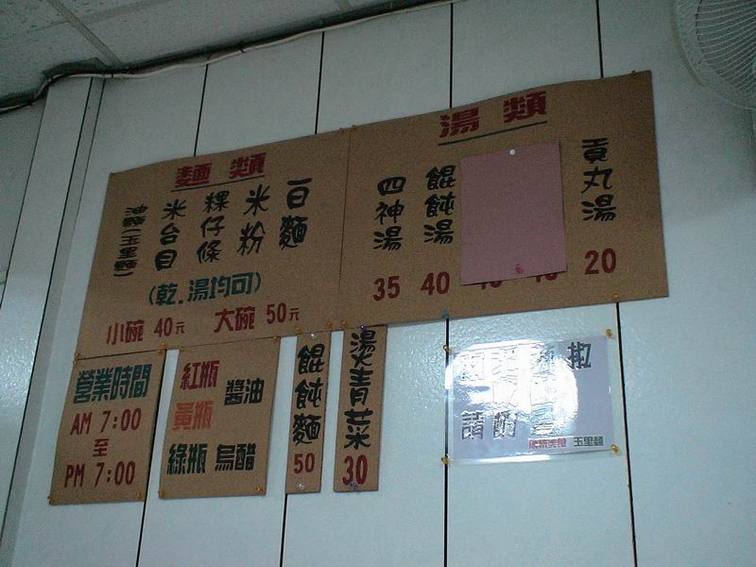 麵類
白麵
米粉
粿仔條
米台目
油麵(玉里麵)
(乾.湯均可)
小碗 40元 大碗 50元
湯類
貢丸湯 20
餛飩湯 40
四神湯 35
營業時間
AM 7:00
至
PM 7:00
紅瓶 醬油
黃瓶
綠瓶 烏醋
餛飩麵 50
燙青菜 30
椒
請
玉里麵